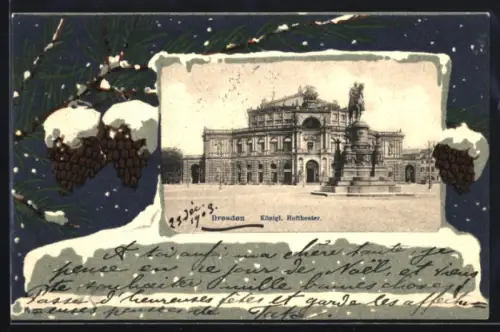 Dresden Königl. Hoftheater.
25 Déc. 1903
A toi aussi ma chère tante je
pense en ce jour de Noël, et viens
te souhaiter mille bonnes choses.
Passe d'heureuses fêtes et garde les affectu-
euses pensées de